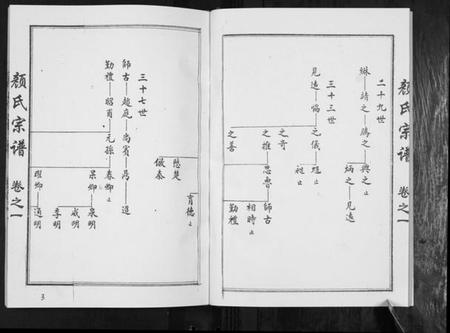 顏氏宗谱 卷之一
二十九世
綝—靖之—騰之—興之止
炳之—見遠
三十三世
見遠—協—之儀—
昶止
之奇
之推—思魯—師古
相時止
勤禮
之善
愍楚
育德止
遊秦
三十七世
師古—趨庭—尚賓—昌—遥
勤禮—昭甫—元孫—春卿止
杲卿—泉明
威明
季明
耀卿—通明
顏氏宗谱 卷之一
3